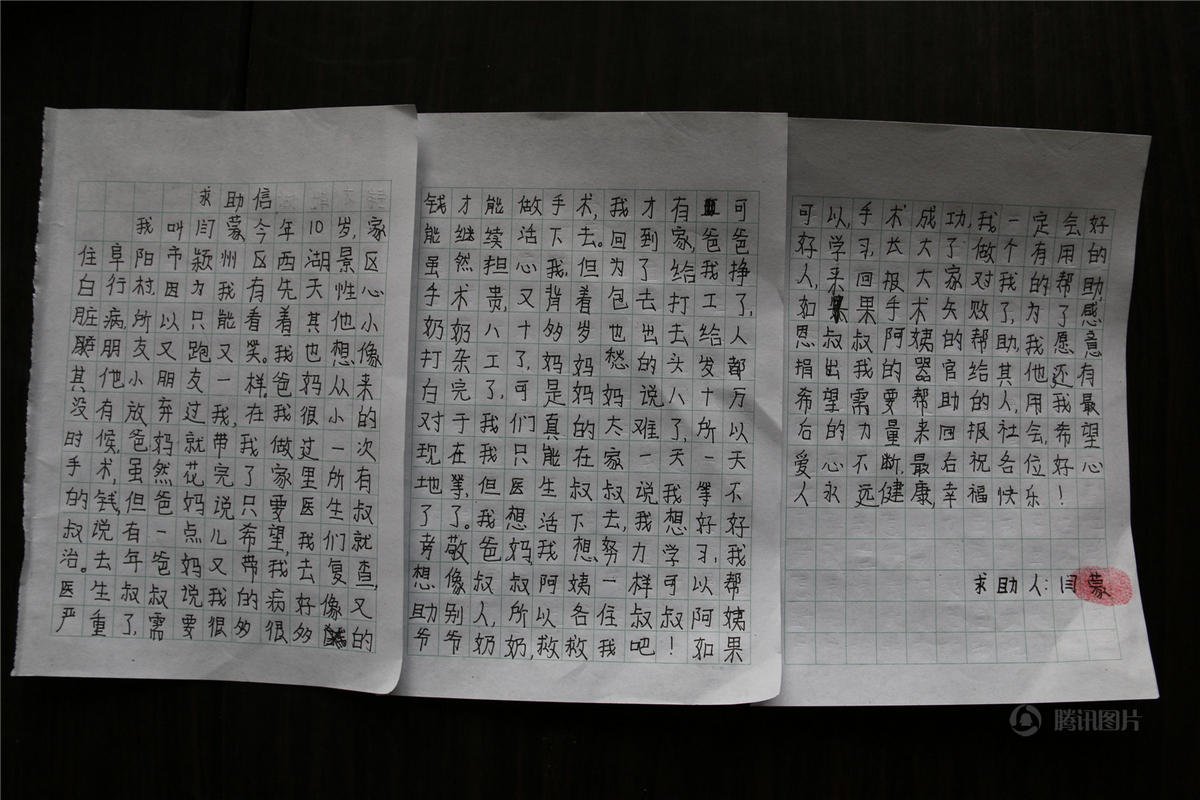 求助信
我叫闫蒙,今年10岁,家
住阜阳市颍州区西湖景区
白行村,因为我有先天性心
脏病,所以只能看着其他小
朋友又跑又笑。我也想像
其他小朋友一样,爸妈从来
没有放弃过我,在我很小的
时候,爸妈就带我做过一次
手术,虽然花完了家里所有
的钱,但爸妈说只要医生叔
叔说有一点儿希望,我们就
治。去年爸妈又带我去复查,
医生叔叔说我的病好像又
严重了,需要很多很多的
钱才能做手术,我才有可
能继续活下去。回到家,爸爸
虽然担心我,但为了给我挣
手术费,又背着包去打工了,
奶奶八十多岁也出去给人
打杂工了,妈妈愁的头发都
白完了,可是妈妈说八十万
对于我们真的太难了,所以
现在我只能在家一天一天
地等,但医生叔叔说我等不
了了。我想活下去,我想好好
孝敬爸妈,我想努力学习,我
想像叔叔阿姨一样可以帮
助别人,所以各位叔叔阿姨
爷爷奶奶,救救我吧!如果
可以,手术成功,我一定会好
好学习,长大了做个有用的
人,来回报大家对我的帮助,
如果手术失败了,为了感
恩叔叔阿姨的帮助,我愿意
捐出我的器官给其他还有
希望需要帮助的人,用我最
后的力量来回报社会,希望
爱心不断.最后祝各位好心
人永远健康,幸福快乐!
求助人:闫蒙
腾讯图片